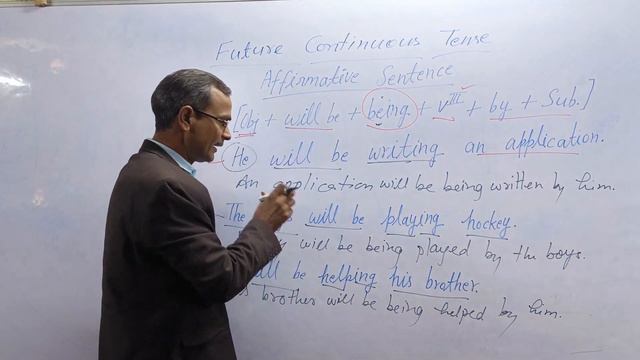 Future Continuous Tense
Affirmative Sentence
[obj + will be + being + vIII + by + Sub.]
He will be writing an application.
An application will be being written by him.
The will be playing hockey.
will be being played by the boys.
be helping his brother.
brother will be being helped by him.